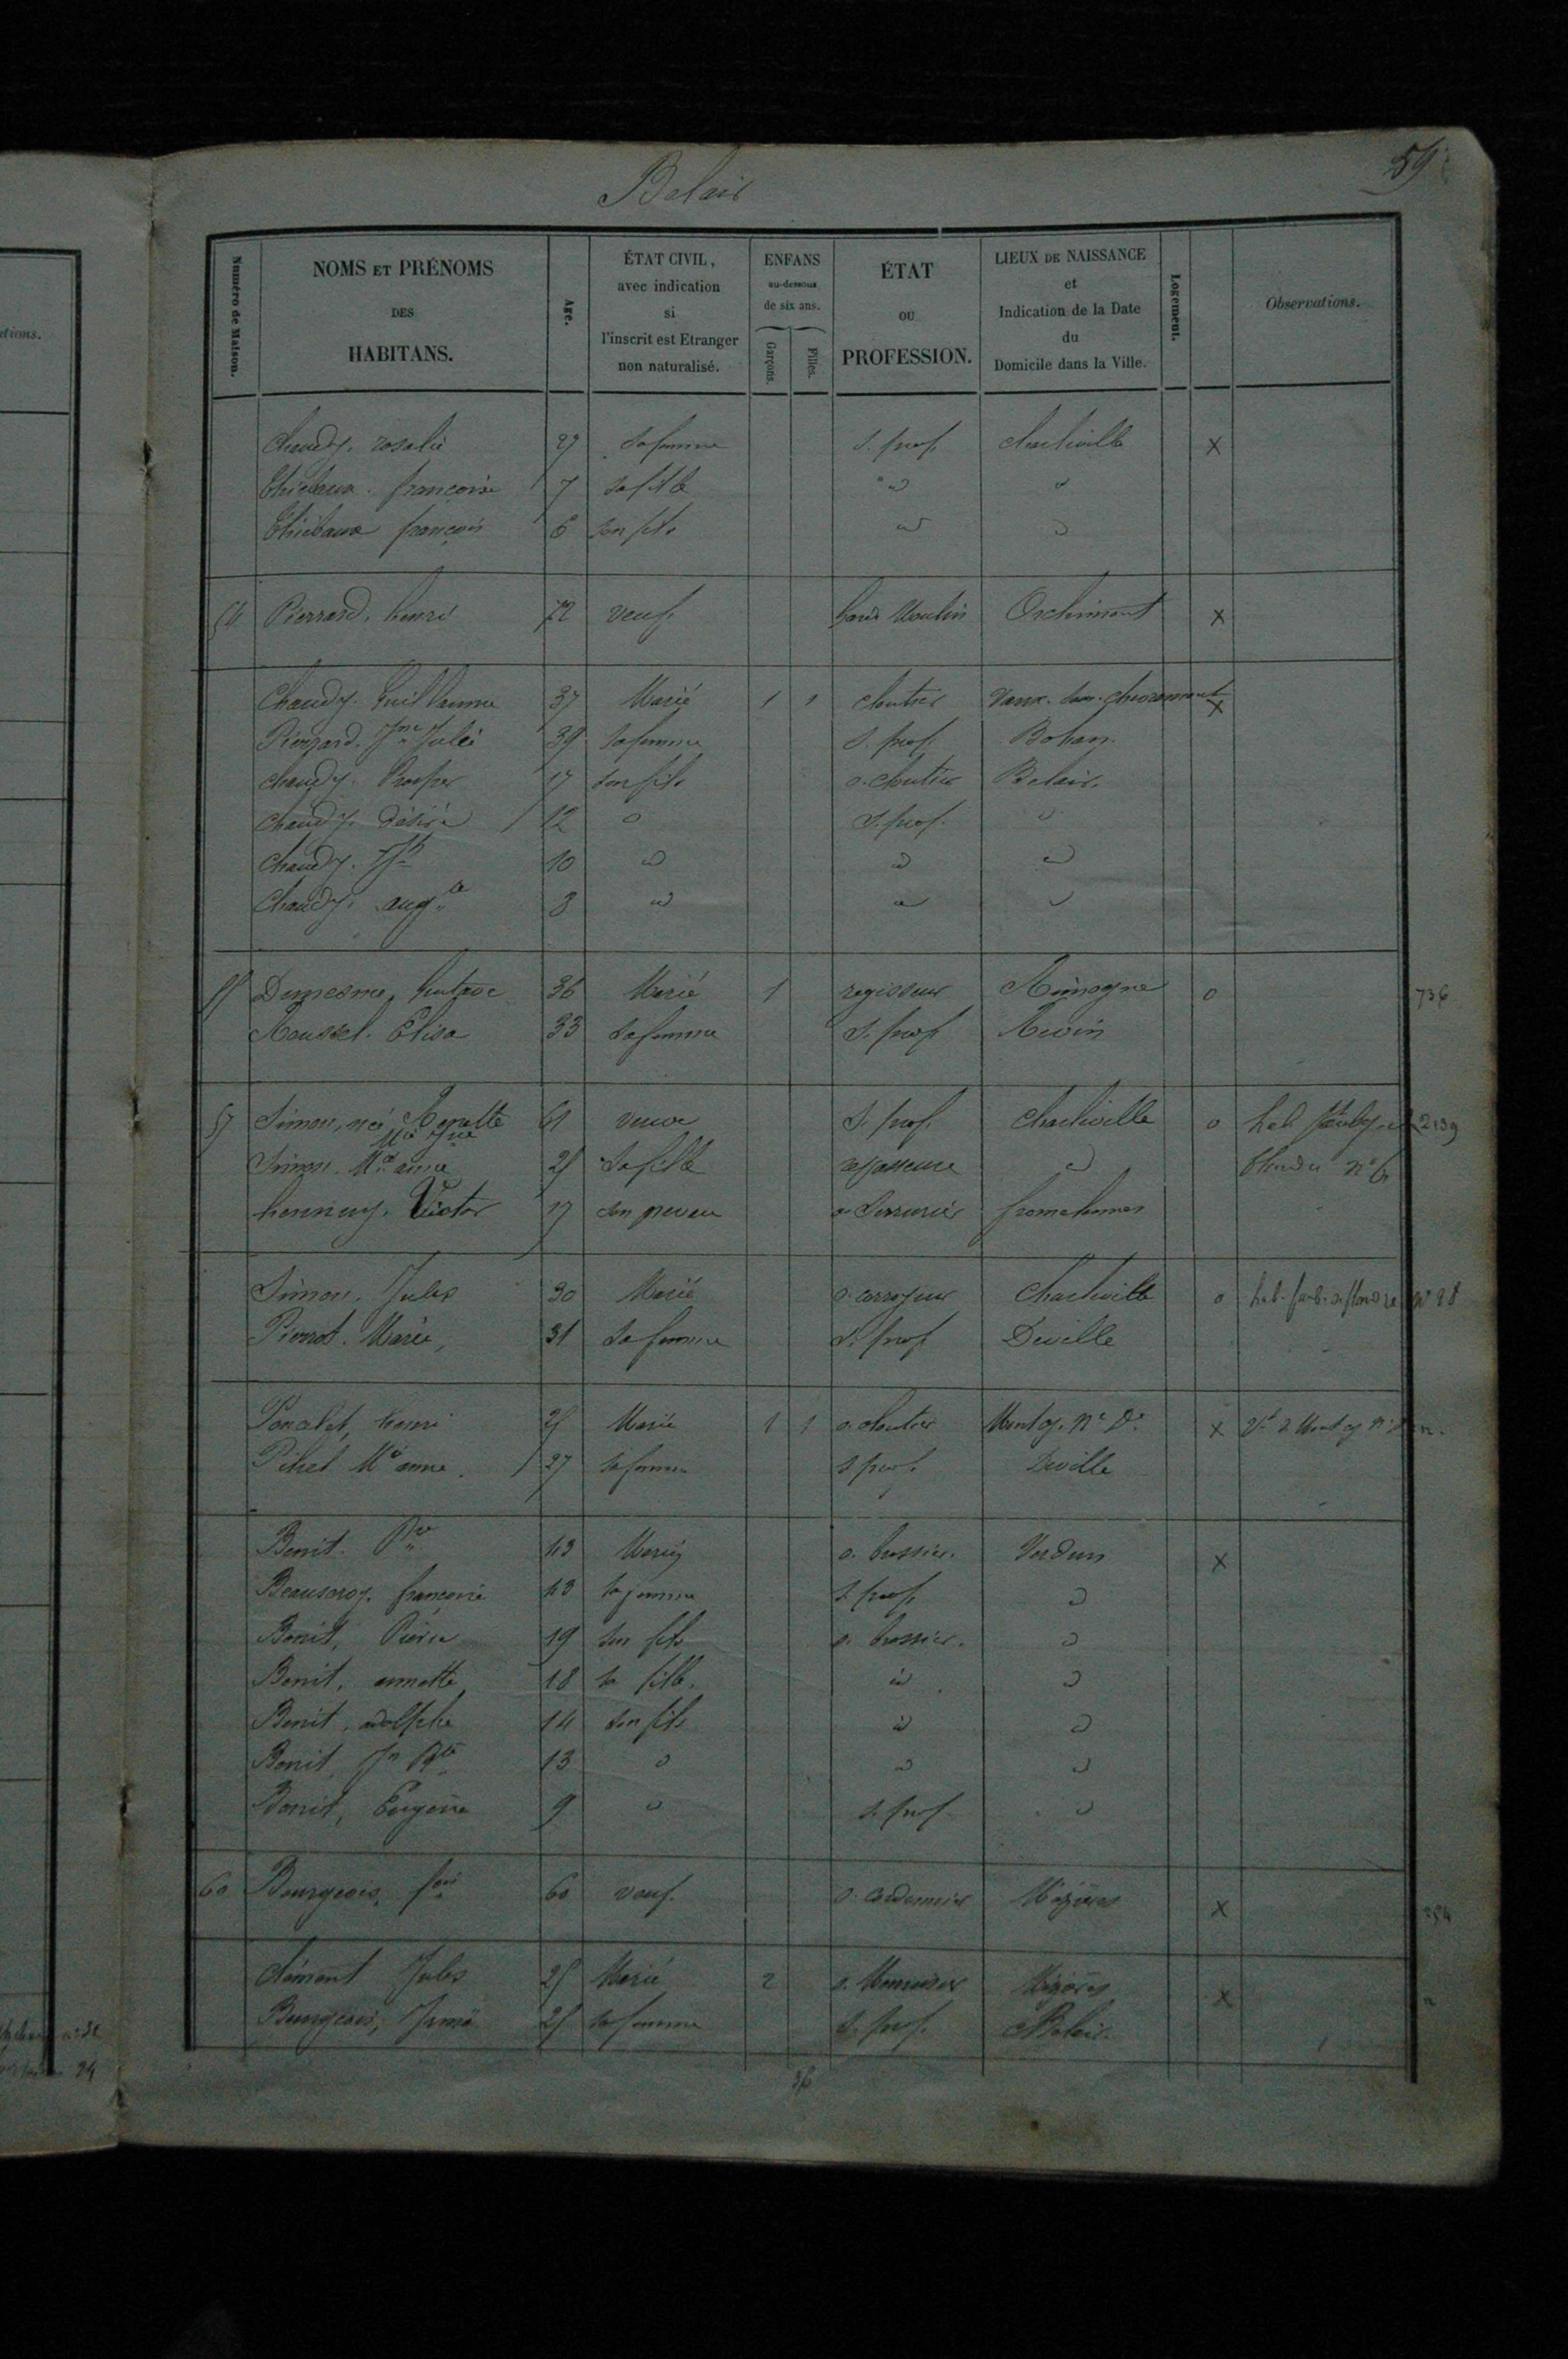 Belair
59
Numéro de Maison.
NOMS ET PRÉNOMS
DES
HABITANS.
Age.
ÉTAT CIVIL,
avec indication
si
l'inscrit est Etranger
non naturalisé.
ENFANS
au-dessous
de six ans.
Garçons.
Filles.
ÉTAT
OU
PROFESSION.
LIEUX DE NAISSANCE
et
Indication de la Date
du
Domicile dans la Ville.
Logement.
Observations.
Chaudy. rosalie 29 Sa femme S. prof. charleville X
Thiebaux. françoise 7 sa fille id id
Thiebaux françois 6 son fils id id
54 Pierrard, henri 72 veuf. Orchimont X
Chaudy. Guillaume 37 Marié 1 1 cloutier X
Pierrard. Jne Julie 39 Sa femme S. prof. Bohan.
chaudy. Prosper 17 son fils o. cloutier Belair.
Chaudy. Désiré 12 S. prof.
Chaudy. Jh 10 id id id
Chaudy. augte 8 id id id
Dumesme, Gustave 36 Marié 1 regisseur Rimogne o 736
Roussel. Elisa 33 Sa femme S. prof Revin
57 Simon, née 61 veuve S. prof. Charleville o 2139
Simon. Mie anne 25 Sa fille repasseuse id
hennuy. Victor 17 son neveu o Serrurier
Simon. Jules 30 Marié o. corroyeur Charleville o hab. faub. de flandre n° 28
Pierrot. Marie, 31 Sa femme S. prof Deville
Poncelet, henri 25 Marié 1 1 o. cloutier Montcy. Ne De X
Pihet Mie anne. 27 sa femme S prof. Deville
Benit. Pre 43 Marié o. brossier. Verdun X
françoise 43 sa femme S. prof. id
Benit, Pierre 19 son fils o. brossier. id
Benit, annette 18 sa fille. id id
Benit, adolphe 14 son fils id id
Benit Jn Bte 13 id id id
Benit, Eugène 9 id S. prof id
60 Bourgeois, fois 60 veuf. o. cordonnier Mézières X 254
Clément Jules 25 Marié 2 o. Menuisier Mézières X
Bourgeois, Irma 25 sa femme S. prof. Belair.
36